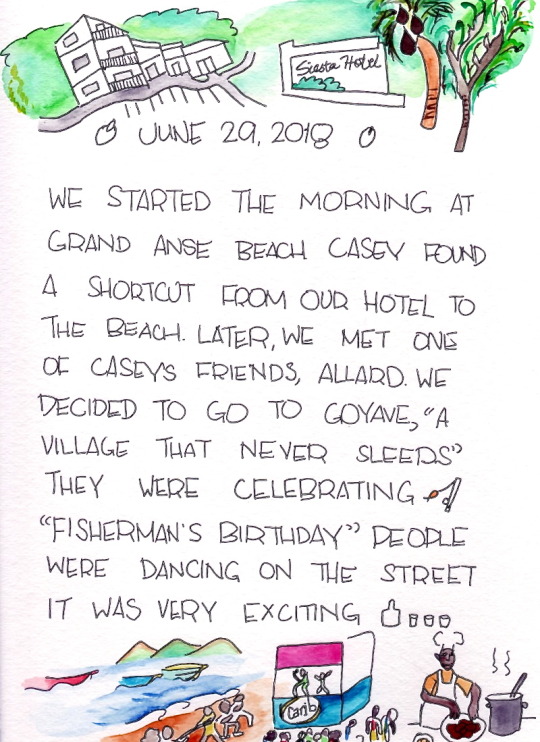 Siesta Hotel
JUNE 29, 2018
WE STARTED THE MORNING AT
GRAND ANSE BEACH CASEY FOUND
A SHORTCUT FROM OUR HOTEL TO
THE BEACH. LATER, WE MET ONE
OF CASEY'S FRIENDS, ALLARD. WE
DECIDED TO GO TO GOYAVE, "A
VILLAGE THAT NEVER SLEEPS"
THEY WERE CELEBRATING
"FISHERMAN'S BIRTHDAY" PEOPLE
WERE DANCING ON THE STREET
IT WAS VERY EXCITING
Carib